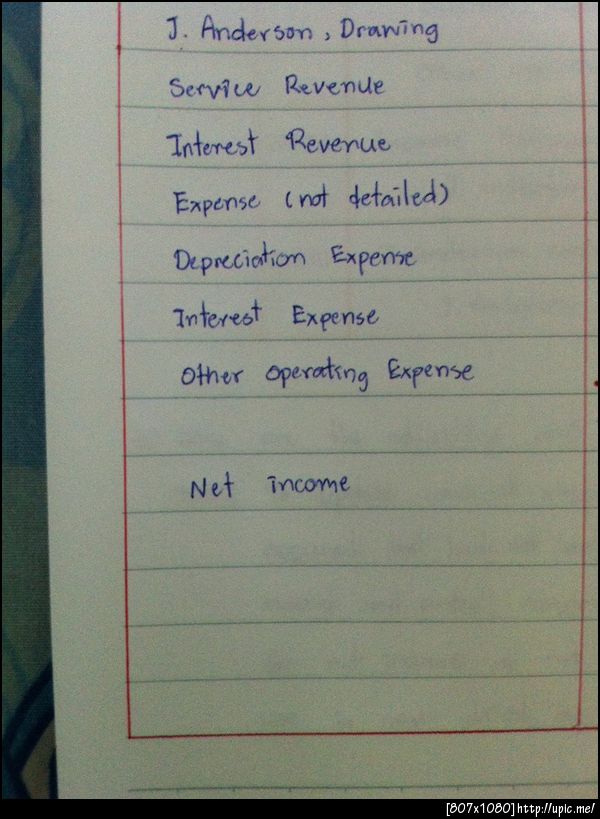 J. Anderson, Drawing
Service Revenue
Interest Revenue
Expense (not detailed)
Depreciation Expense
Interest Expense
Other Operating Expense
Net income
[807x1080] http://upic.me/